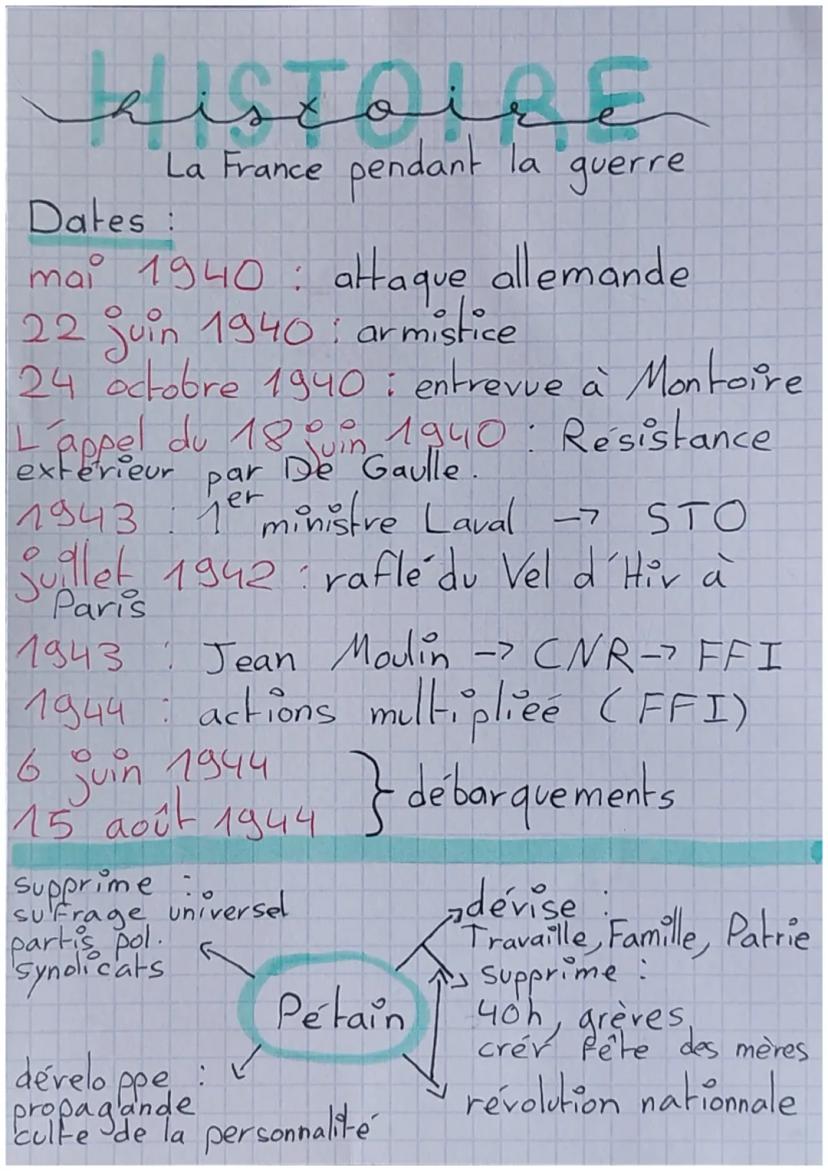 HISTOIRE
histoire
La France pendant la guerre
Dates :
mai 1940 : attaque allemande
22 juin 1940 : armistice
24 octobre 1940 : entrevue à Montoire
L'appel du 18 juin 1940 : Résistance
extérieur par De Gaulle.
1943 : 1er ministre Laval -> STO
juillet 1942 : rafle du Vel d'Hiv à
Paris
1943 : Jean Moulin -> CNR -> FFI
1944 : actions multipliéé (FFI)
6 juin 1944
15 août 1944 } débarquements
supprime :
suffrage universel
partis pol.
syndicats
dévise :
Travaille, Famille, Patrie
supprime :
40h, grèves,
crér fête des mères
Pétain
développe :
propagande
culte de la personnalité
révolution nationnale